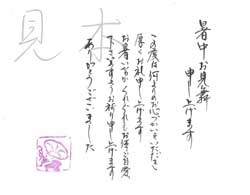 暑中お見舞
申し上げます
この度は何よりのお心づかいをいただき
厚くお礼申し上げます
お暑い折からくれぐれもお体ご自愛
下さいますようお祈り申し上げます
ありがとうございました
見本